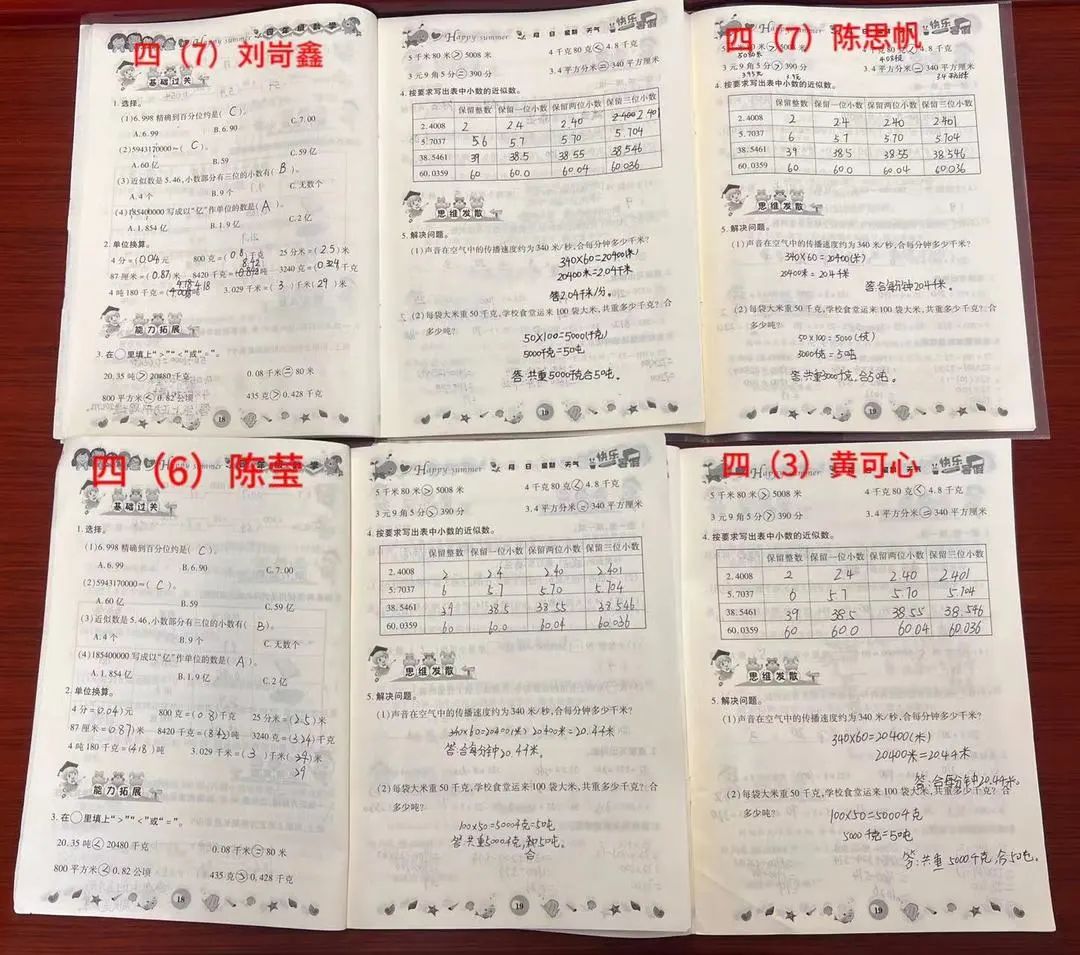 四（7）刘岢鑫
Happy summer
基础过关
1. 选择。
(1)6.998 精确到百分位约是( C )。
A. 6.99 B. 6.90 C. 7.00
(2)5943170000≈( C )。
A. 60 亿 B. 59 C. 59 亿
(3)近似数是 5.46,小数部分有三位的小数有( B )。
A. 4 个 B. 9 个 C. 无数个
(4)185400000 写成以“亿”作单位的数是( A )。
A. 1.854 亿 B. 1.9 亿 C. 2 亿
2. 单位换算。
4 分=(0.04)元 800 克=(0.8)千克 25 分米=(2.5)米
87 厘米=(0.87)米 8420 千克=(8.42)吨 3240 克=(0.324)千克
4 吨 180 千克=(4.18)吨 3.029 千米=( 3 )千米(29)米
能力拓展
3. 在○里填上“>”“<”或“=”。
20.35 吨>20480 千克 0.08 千米=80 米
800 平方米<0.82 公顷 435 克>0.428 千克
18
Happy summer 月 日 星期 天气 快乐暑假
5 千米 80 米>5008 米 4 千克 80 克<4.8 千克
3 元 9 角 5 分=390 分 3.4 平方分米=340 平方厘米
4. 按要求写出表中小数的近似数。
保留整数 保留一位小数 保留两位小数 保留三位小数
2.4008 2 2.4 2.40 2.400 2.401
5.7037 5.6 5.7 5.70 5.704
38.5461 39 38.5 38.55 38.546
60.0359 60 60.0 60.04 60.036
思维发散
5. 解决问题。
(1)声音在空气中的传播速度约为 340 米/秒,合每分钟多少千米?
340×60=20400(米)
20400米=2.04千米
答2.04千米/分。
(2)每袋大米重 50 千克,学校食堂运来 100 袋大米,共重多少千克? 合
多少吨?
50×100=5000(千克)
5000千克=50吨
答:共重5000千克合50吨。
19
四（7）陈思帆
快乐暑假
5 千米 80 米>5008 米 4 千克 80 克<4.8 千克
3 元 9 角 5 分>390 分 3.4 平方分米=340 平方厘米
4. 按要求写出表中小数的近似数。
保留整数 保留一位小数 保留两位小数 保留三位小数
2.4008 2 2.4 2.40 2.401
5.7037 6 5.7 5.70 5.704
38.5461 39 38.5 38.55 38.546
60.0359 60 60.0 60.04 60.036
思维发散
5. 解决问题。
(1)声音在空气中的传播速度约为 340 米/秒,合每分钟多少千米?
340×60=20400(米)
20400米=20.4千米
答:合每分钟20.4千米。
(2)每袋大米重 50 千克,学校食堂运来 100 袋大米,共重多少千克? 合
多少吨?
50×100=5000(千克)
3000千克=50吨
答:共重3000千克,合50吨。
19
四（6）陈莹
Happy summer
基础过关
1. 选择。
(1)6.998 精确到百分位约是( C )。
A. 6.99 B. 6.90 C. 7.00
(2)5943170000≈( C )。
A. 60 亿 B. 59 C. 59 亿
(3)近似数是 5.46,小数部分有三位的小数有( B )。
A. 4 个 B. 9 个 C. 无数个
(4)185400000 写成以“亿”作单位的数是( A )。
A. 1.854 亿 B. 1.9 亿 C. 2 亿
2. 单位换算。
4 分=(0.04)元 800 克=(0.8)千克 25 分米=(2.5)米
87 厘米=(0.87)米 8420 千克=(8.42)吨 3240 克=(3.24)千克
4 吨 180 千克=(4.18)吨 3.029 千米=( 3 )千米(29)米
29
能力拓展
3. 在○里填上“>”“<”或“=”。
20.35 吨<20480 千克 0.08 千米=80 米
800 平方米<0.82 公顷 435 克>0.428 千克
18
Happy summer 月 日 星期 天气 快乐暑假
5 千米 80 米>5008 米 4 千克 80 克<4.8 千克
3 元 9 角 5 分>390 分 3.4 平方分米=340 平方厘米
4. 按要求写出表中小数的近似数。
保留整数 保留一位小数 保留两位小数 保留三位小数
2.4008 2 2.4 2.40 2.401
5.7037 6 5.7 5.70 5.704
38.5461 39 38.5 38.55 38.546
60.0359 60 60.0 60.04 60.036
思维发散
5. 解决问题。
(1)声音在空气中的传播速度约为 340 米/秒,合每分钟多少千米?
340×60=20400(米) 20400米=20.4千米
答:合每分钟20.4千米。
(2)每袋大米重 50 千克,学校食堂运来 100 袋大米,共重多少千克? 合
多少吨?
100×50=5000千克=50吨
答:共重5000千克,和50吨。
合
19
四（3）黄可心
月 日 星期 天气 快乐暑假
5 千米 80 米>5008 米 4 千克 80 克<4.8 千克
3 元 9 角 5 分>390 分 3.4 平方分米=340 平方厘米
4. 按要求写出表中小数的近似数。
保留整数 保留一位小数 保留两位小数 保留三位小数
2.4008 2 2.4 2.40 2.401
5.7037 6 5.7 5.70 5.704
38.5461 39 38.5 38.55 38.546
60.0359 60 60.0 60.04 60.036
思维发散
5. 解决问题。
(1)声音在空气中的传播速度约为 340 米/秒,合每分钟多少千米?
340×60=20400(米)
20400米=20.4千米
答:合每分钟20.4千米。
(2)每袋大米重 50 千克,学校食堂运来 100 袋大米,共重多少千克? 合
多少吨?
100×50=5000千克
5000千克=50吨
答:共重5000千克,合50吨。
19